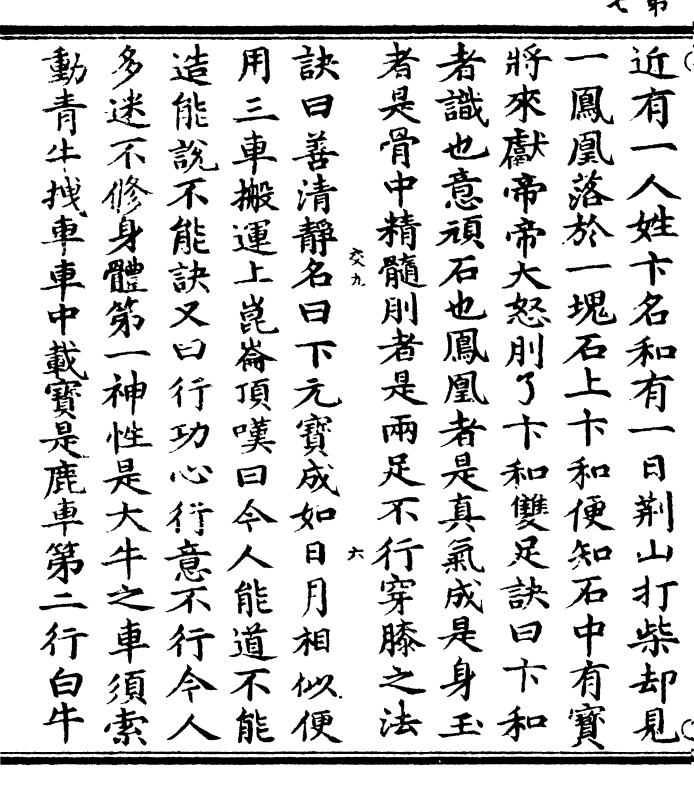 近有一人姓卞名和有一日荆山打柴却見
一鳳凰落於一塊石上卞和便知石中有寶
將來獻帝帝大怒刖了卞和雙足訣曰卞和
者識也意頑石也鳳凰者是真氣成是身玉
者是骨中精髓刖者是兩足不行穿膝之法
交九
六
訣曰善清靜名曰下元寶成如日月相似便
用三車搬運上崑崙頂嘆曰今人能道不能
造能說不能訣又曰行功心行意不行今人
多迷不修身體第一神性是大牛之車須索
動青牛拽車車中載寶是鹿車第二行白牛